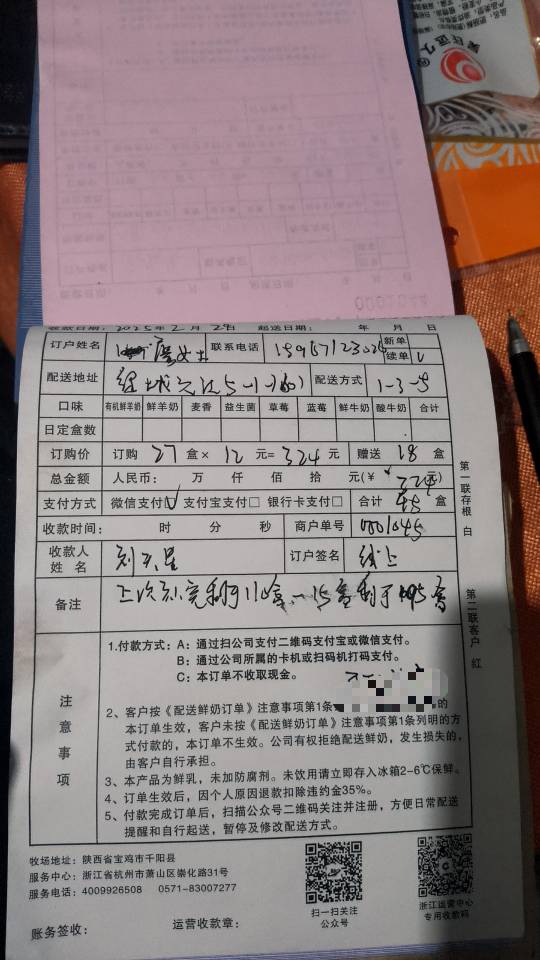 收款日期：2025年2月28日 起送日期： 年 月 日
订户姓名 女士 联系电话 新单
续单 √
配送地址 配送方式 1-3-5
口味 有机鲜羊奶 鲜羊奶 麦香 益生菌 草莓 蓝莓 鲜牛奶 酸牛奶 合计
日定盒数
订购价 订购 27 盒× 12 元= 324 元 赠送 18 盒
总金额 人民币： 万 仟 佰 拾 元(￥ 324 元)
支付方式 微信支付☑ 支付宝支付□ 银行卡支付□ 合计 45 盒
收款时间： 时 分 秒 商户单号 0001045
收款人
姓 名
订户签名 线上
备注
第一联存根 白
第二联客户 红
注意事项
1.付款方式：A：通过扫公司支付二维码支付宝或微信支付。
B：通过公司所属的卡机或扫码机打码支付。
C：本订单不收取现金。
2、客户按《配送鲜奶订单》注意事项第1条 的
本订单生效，客户未按《配送鲜奶订单》注意事项第1条列明的方
式付款的，本订单不生效。公司有权拒绝配送鲜奶，发生损失的，
由客户自行承担。
3、本产品为鲜乳，未加防腐剂。未饮用请立即存入冰箱2-6℃保鲜。
4、订单生效后，因个人原因退款扣除违约金35%。
5、付款完成订单后，扫描公众号二维码关注并注册，方便日常配送
提醒和自行起送，暂停及修改配送方式。
牧场地址：陕西省宝鸡市千阳县
服务中心：浙江省杭州市萧山区崇化路31号
服务电话：4009926508 0571-83007277
扫一扫关注
公众号
浙江运营中心
专用收款码
账务签收： 运营收款章：